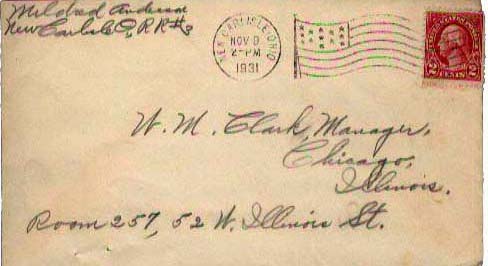 Mildred Anderson
New Carlisle O, RR#3
NEW CARLISLE, OHIO
NOV 9
2-PM
1931
2 CENTS 2
W. M. Clark, Manager,
Chicago,
Illinois.
Room 257, 52 W. Illinois St.